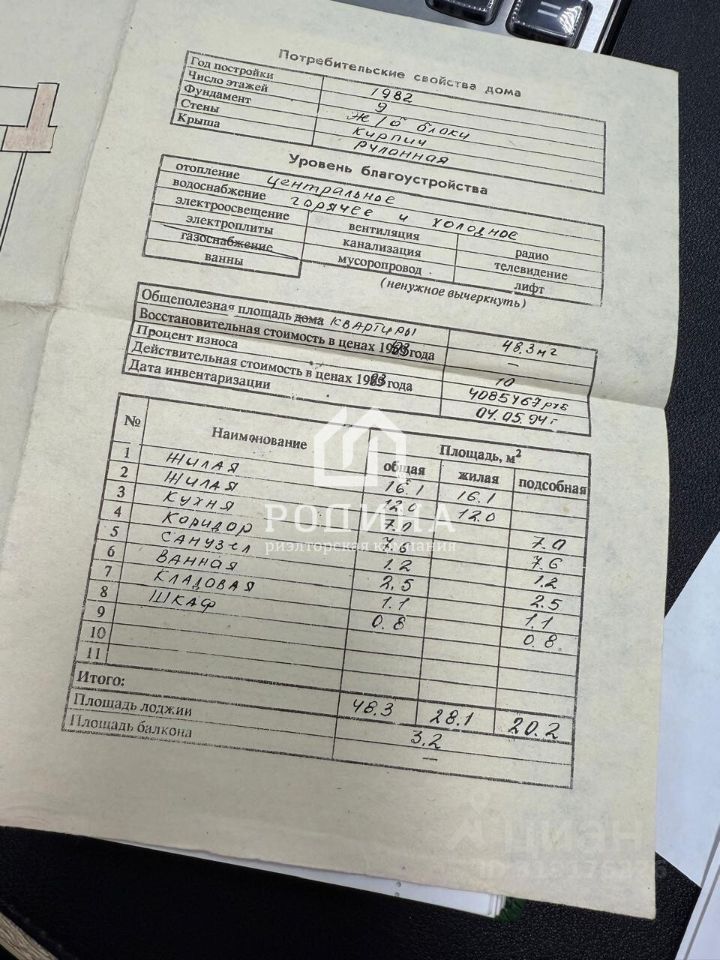 Потребительские свойства дома
Год постройки 1982
Число этажей 9
Фундамент ж/б блоки
Стены кирпич
Крыша рулонная
Уровень благоустройства
отопление центральное
водоснабжение горячее и холодное
электроосвещение вентиляция радио
электроплиты канализация телевидение
газоснабжение мусоропровод лифт
ванны
(ненужное вычеркнуть)
Общеполезная площадь дома квартиры 48.3 м²
Восстановительная стоимость в ценах 1993 года —
Процент износа 10
Действительная стоимость в ценах 1993 года 4085467 руб
Дата инвентаризации 04.05.94 г
№ Наименование Площадь, м²
общая жилая подсобная
1 жилая 16.1 16.1
2 жилая 12.0 12.0
3 кухня 7.0 7.0
4 коридор 7.6 7.6
5 санузел 1.2 1.2
6 ванная 2.5 2.5
7 кладовая 1.1 1.1
8 шкаф 0.8 0.8
9
10
11
Итого: 48.3 28.1 20.2
Площадь лоджии 3.2
Площадь балкона —
РОПИНА
риэлторская компания
циан